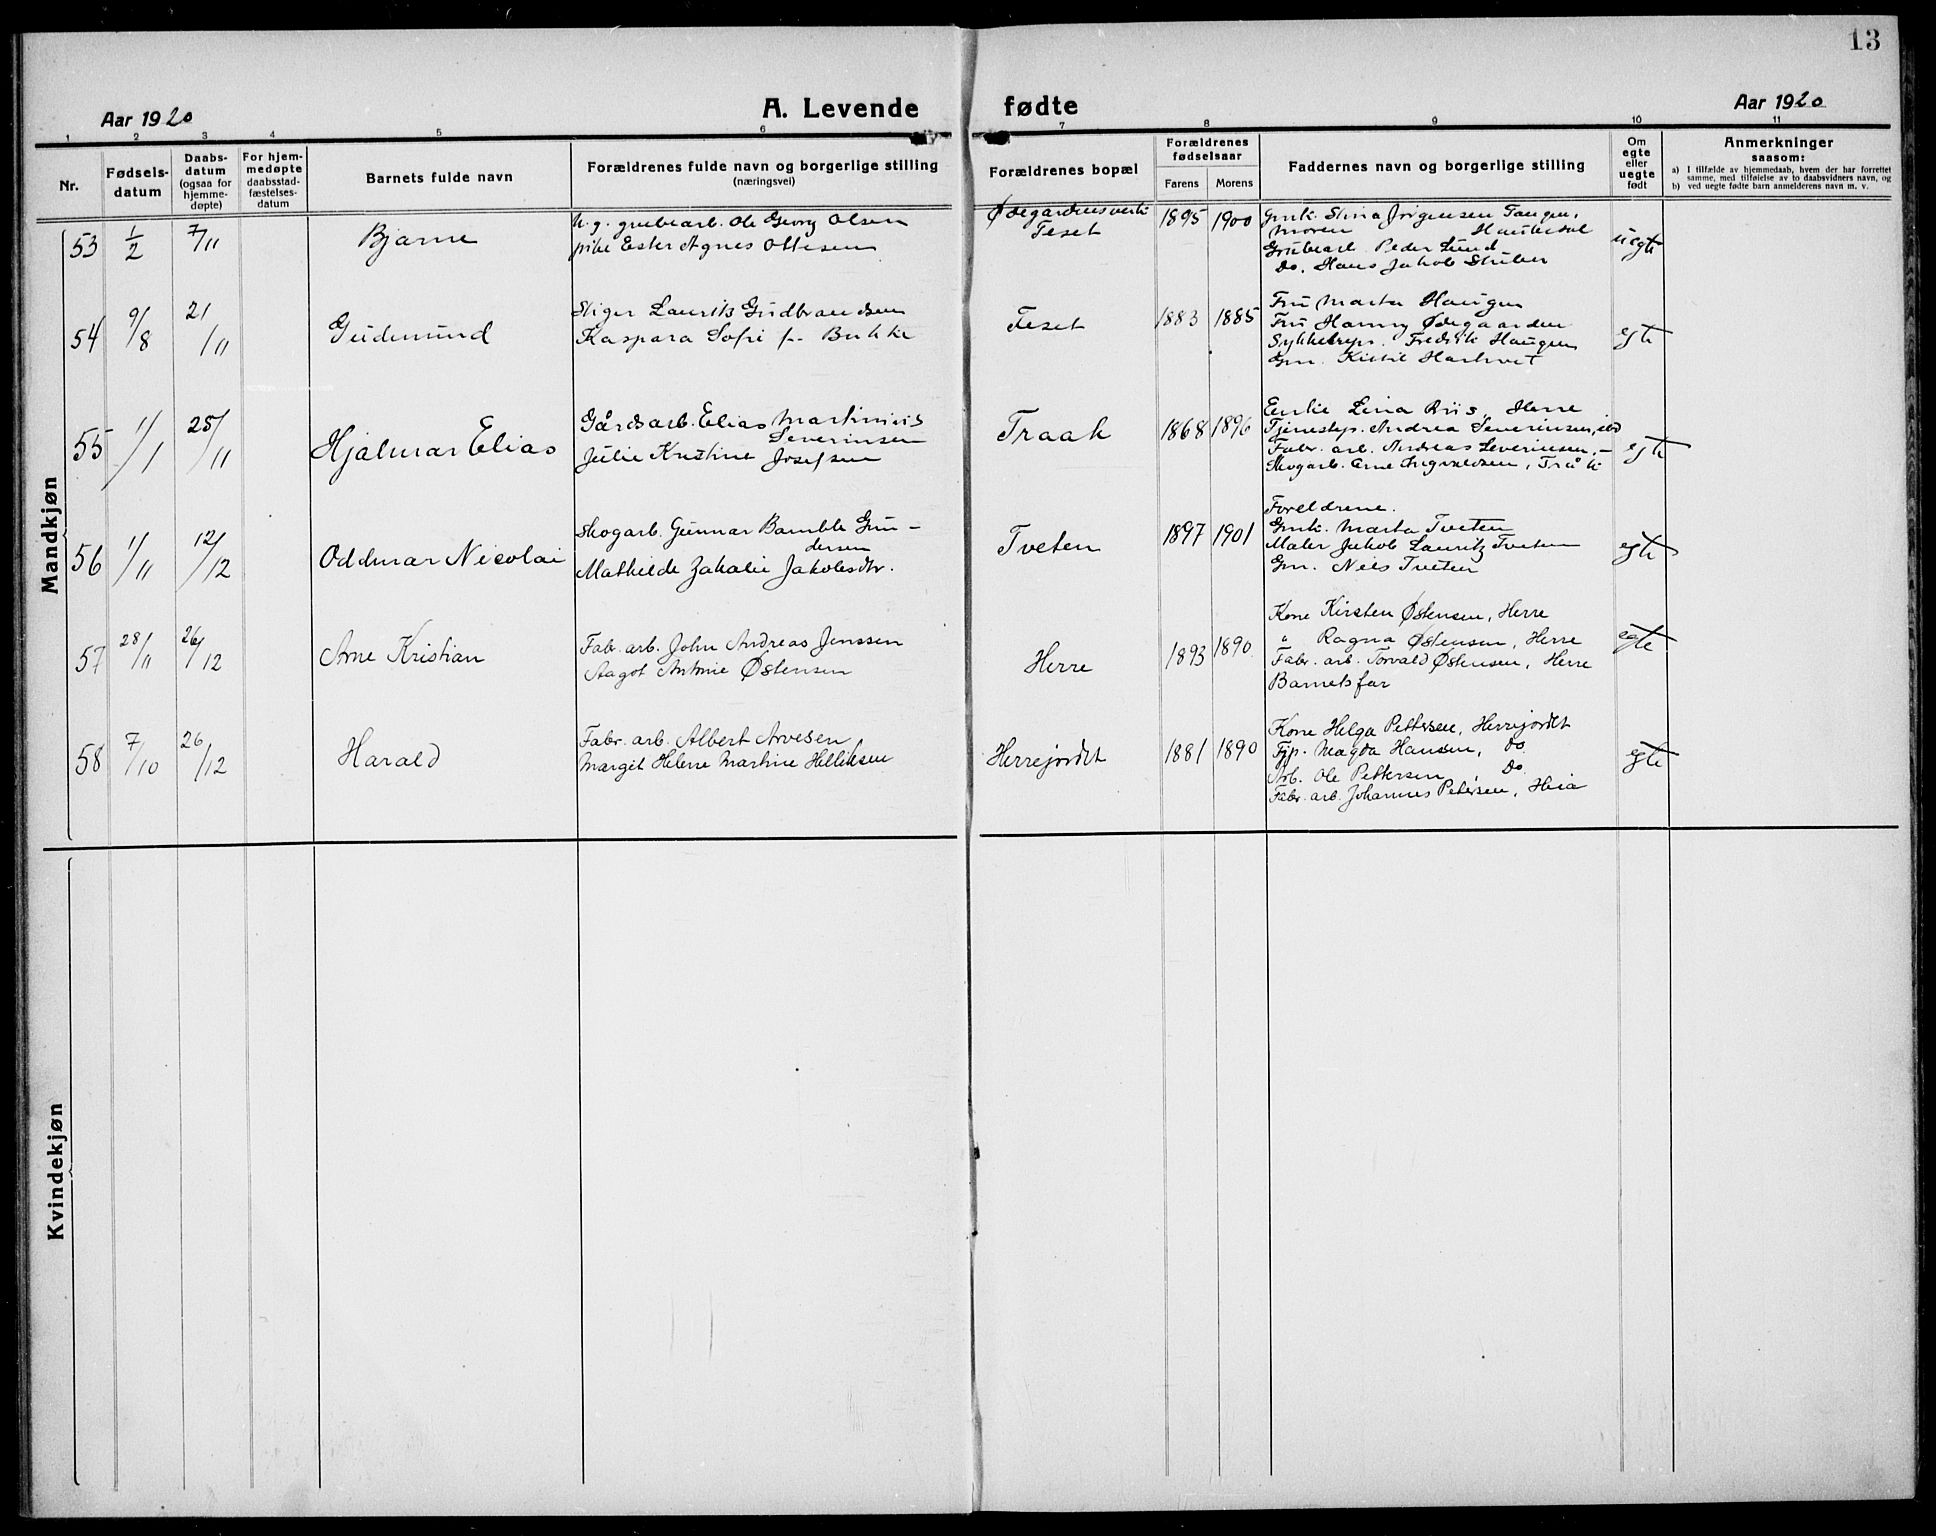 13
Aar 1920
A. Levende fødte
Aar 1920
1 2 3 4 5 6 7 8 9 10 11
Nr.
Fødsels-
datum
Daabs-
datum
(ogsaa for
hjemme-
døpte)
For hjem-
medøpte
daabsstad-
fæstelses-
datum
Barnets fulde navn
Forældrenes fulde navn og borgerlige stilling
(næringsvei)
Forældrenes bopæl
Forældrenes
fødselsaar
Farens Morens
Faddernes navn og borgerlige stilling
Om
egte
eller
uegte
født
Anmerkninger
saasom:
a) I tilfælde av hjemmedaab, hvem der har forrettet
samme, med tilføielse av to daabsvidners navn, og
b) ved uegte fødte barn anmelderens navn m. v.
Mandkjøn
53 1/2 7/11 Bjarne
U. g. grubearb. Ole Georg Olsen
pike Ester Agnes Ottesen
Ødegardensverk
Feset
1895 1900
Jørgensen Tangen,
Moren
Grubearb. Peder Lund
Do. Hans Jakob
uegte
54 9/8 21/11 Gudmund
Stiger Laurits Gudbrandsen
Kaspara Sofi f. Bukki
Feset
1883 1885
Fru Marta Haugen
Fru Hanny Ødegaarden
Fredrik Haugen
Gm.
egte
55 1/1 25/11 Hjalmar Elias
Gårdsarb. Elias Martinius
Severinsen
Julie Kristine Josefsen
Traak
1868 1896
Enke Lina Riis, Herre
Tjenestep. Andrea Severinsen, ibd
Fabr. arb. Andreas Severinsen, -
Skogarb. Arne Ingvaldsen, Tråk
egte
56 1/11 12/12 Oddmar Nicolai
Skogarb. Gunnar Bamble Gun-
dersen
Mathilde Zakalie Jakobsdtr.
Tveten
1897 1901
Foreldrene.
Gmk. Marta Tveten
Maler Jakob Lauritz Tveten
Gm. Niels Tveten
egte
57 28/11 26/12 Arne Kristian
Fabr. arb. John Andreas Jenssen
Aagot Antonie Østensen
Herre
1893 1890
Kone Kirsten Østensen, Herre
" Ragna Østensen, Herre
Fabr. arb. Torvald Østensen, Herre
Barnets far
egte
58 7/10 26/12 Harald
Fabr. arb. Albert Arvesen
Margit Helene Martine Helliksen
Herrejordet
1881 1890
Kone Helga Pettersen, Herrejordet
Tjp. Magda Hansen, Do
Arb. Ole Pettersen, Do
Fabr. arb. Johannes Petersen,
egte
Kvindekjøn